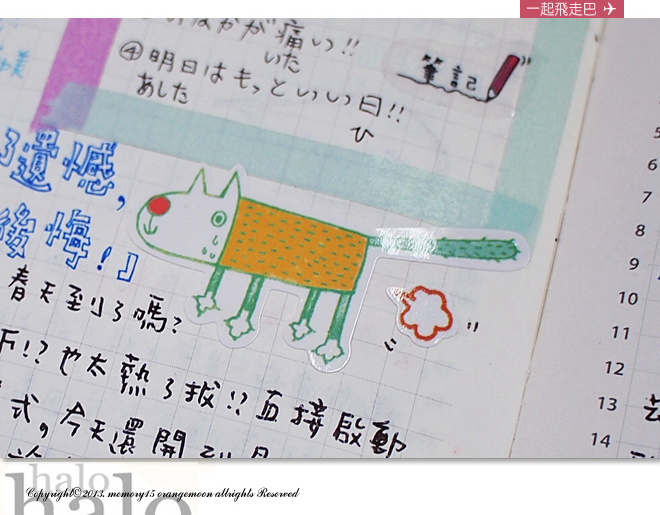 一起飛走巴
なかが痛い!!
いた
④明日はもっといい日!!
あした
ひ
筆記
遺憾,
後悔!」
春天到了嗎?
下!?也太熱了拔!!直接啟動
式。今天還開到
5
6
7
8
9
10
11
12
13
14
halo
halo
Copyright© 2013. memory15 orangemoon allrights Reserved